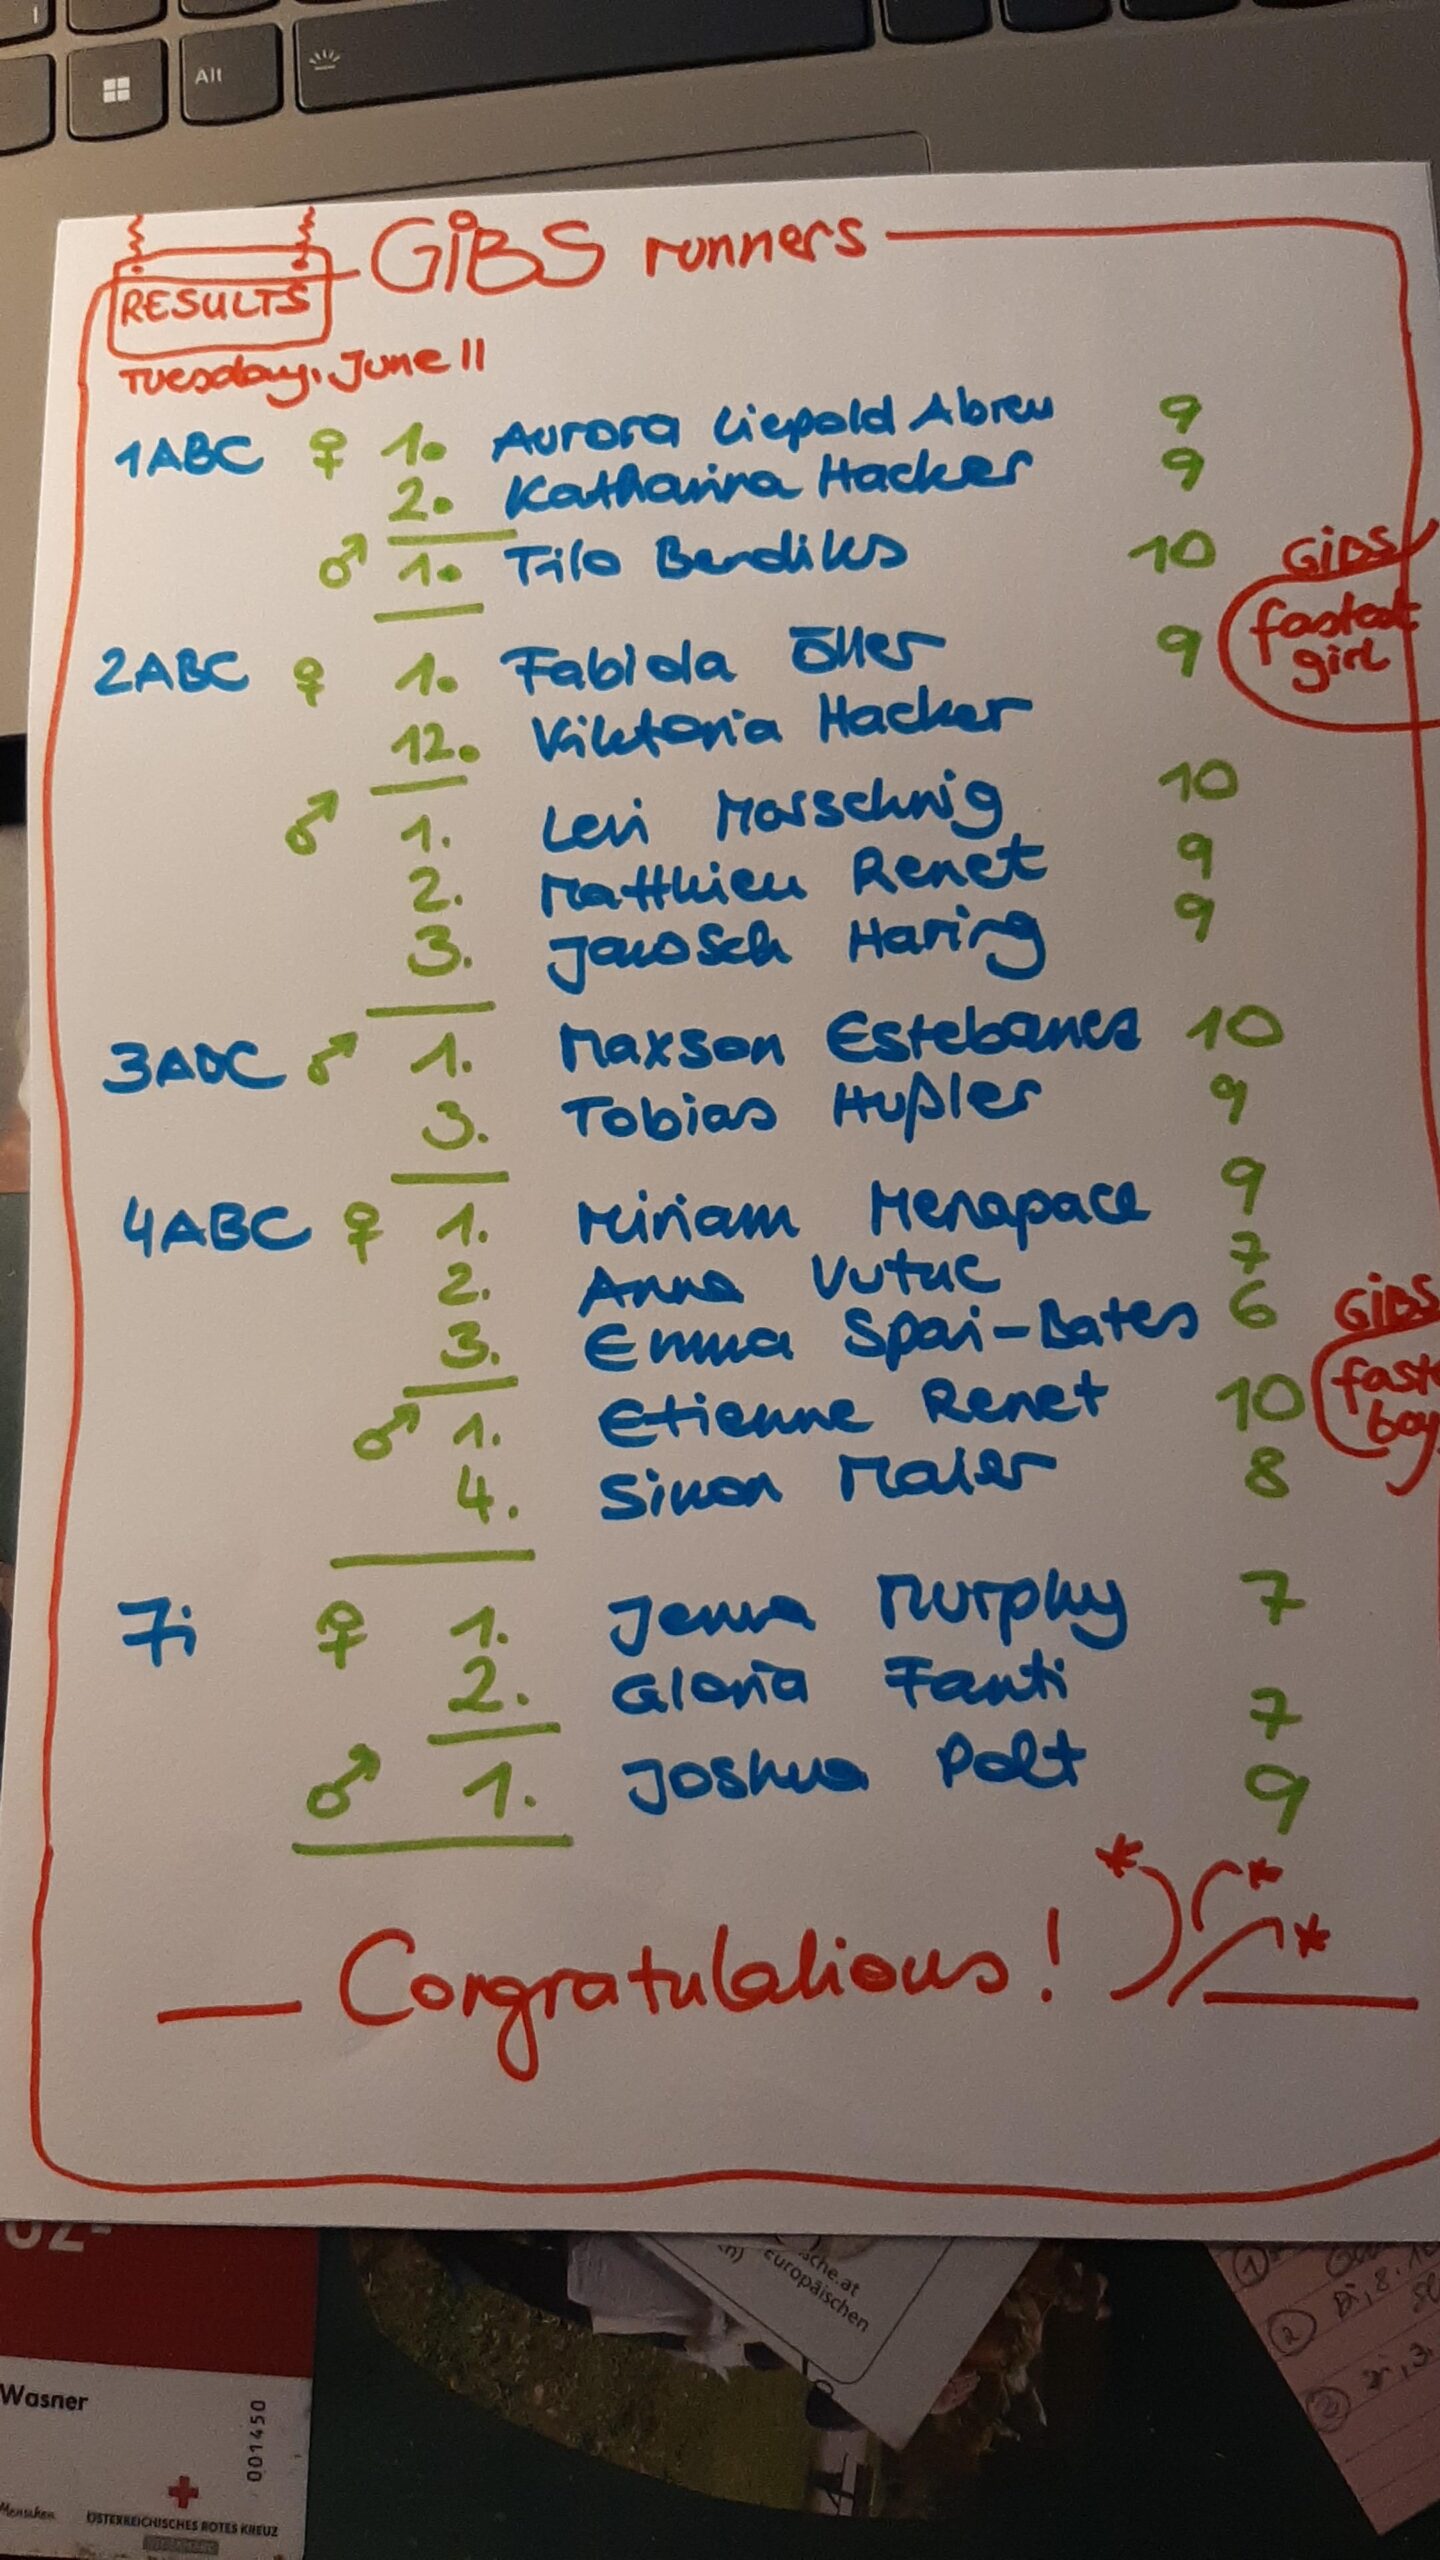 Alt
GiBS runners
RESULTS
Tuesday, June 11
1ABC ♀ 1. Aurora Liepold Abreu 9
2. Katharina Hacker 9
♂ 1. Tilo Bendiks 10
2ABC ♀ 1. Fabiola Öller 9 GiBS fastest girl
12. Viktoria Hacker
♂ 1. Levi Marschnig 10
2. Matthieu Renet 9
3. Janosch Haring 9
3ABC ♂ 1. Maxson Estebanez 10
3. Tobias Hußler 9
4ABC ♀ 1. Miriam Menapace 9
2. Anna Vutuc 7
3. Emma Spari-Bates 6
♂ 1. Etienne Renet 10 GiBS fast boy
4. Simon Maier 8
7i ♀ 1. Jenna Murphy 7
2. Gloria Fanti 7
♂ 1. Joshua Polt 9
Congratulations!
äche.at
europäischen
Wasner
001450
Menschen
ÖSTERREICHISCHES ROTES KREUZ